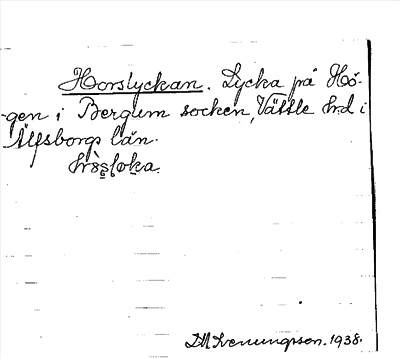 Horslyckan. Lycka på Hö-
gen i Bergum socken, Vättle hd i
Älfsborgs län.
Svenungsson. 1938.